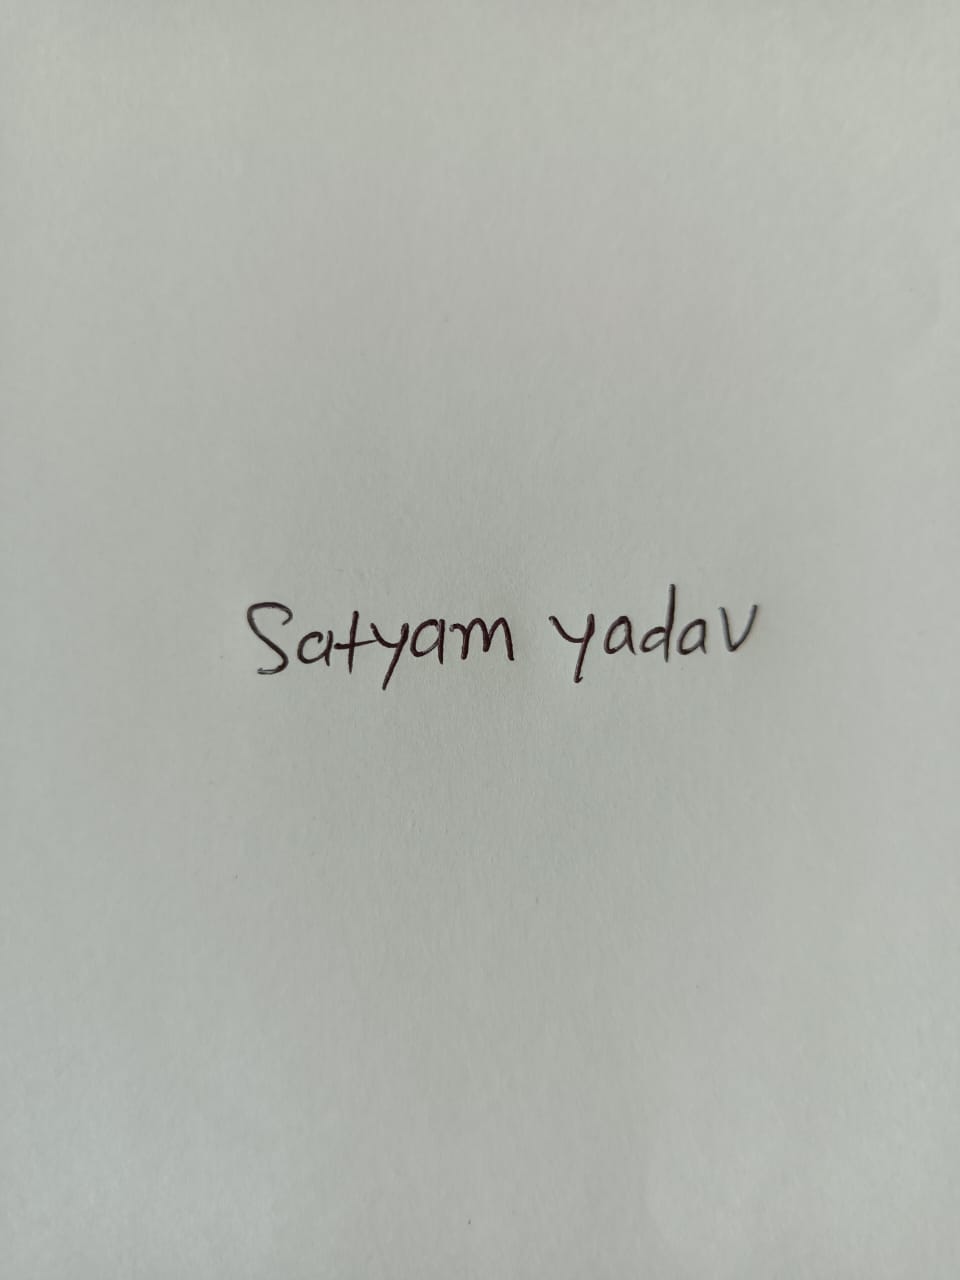 Satyam yadav